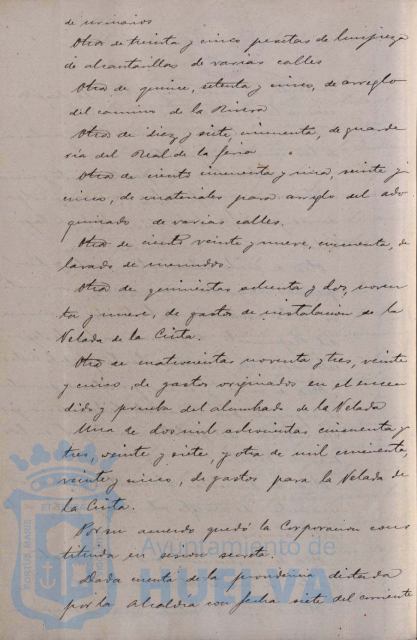 de urinarios
Otra de treinta y cinco pesetas de limpieza
de alcantarillas de varias calles
Otra de quince, setenta y cinco, de arreglo
del camino de la Rivera
Otra de diez y siete, cincuenta, de guarde
ria del Real de la feria
Otra de ciento cincuenta y una, veinte y
cinco, de materiales para arreglo del ado
quinado de varias calles.
Otra de ciento veinte y nueve, cincuenta, de
lavado de menudos.
Otra de quinientas ochenta y dos, noven
ta y nueve, de gastos de instalacion de la
Velada de la Cinta.
Otra de cuatrocientas noventa y tres, veinte
y cinco, de gastos originados en el encen
dido y prueba del alumbrado de la Velada
Una de dos mil ochocientas cincuenta y
tres, veinte y siete, y otra de mil cincuenta,
veinte y cinco, de gastos para la Velada de
la Cinta.
Por su acuerdo quedó la Corporacion cons
tituida en sesion secreta.
Dada cuenta de la providencia dictada
por la Alcaldía con fecha siete del corriente
Ayuntamiento de
HUELVA
PORTUS MARIS